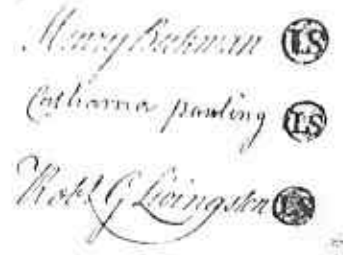 Henry Beekman LS
Catharina pauling LS
Robt G Livingston LS